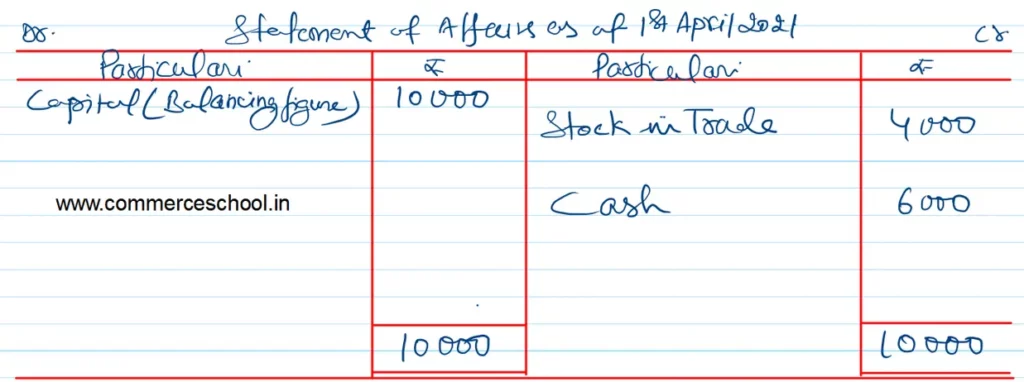 Dr. Statement of Affairs as of 1st April 2021 Cr
Particulars ₹ Particulars ₹
Capital (Balancing figure) 10000
Stock in Trade 4000
www.commerceschool.in Cash 6000
10000 10000